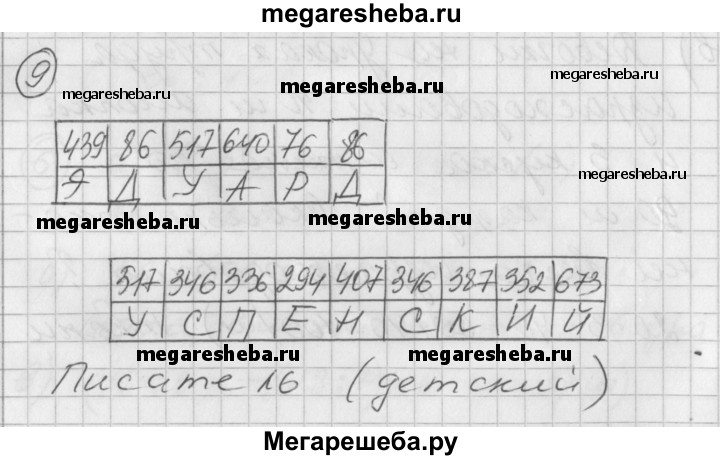 megaresheba.ru
9
megaresheba.ru megaresheba.ru megaresheba.ru
439 86 517 640 76 86
Э Д У А Р Д
megaresheba.ru megaresheba.ru
517 346 336 294 407 346 387 352 673
У С П Е Н С К И Й
megaresheba.ru megaresheba.ru
Писатель (детский)
Мегарешеба.ру